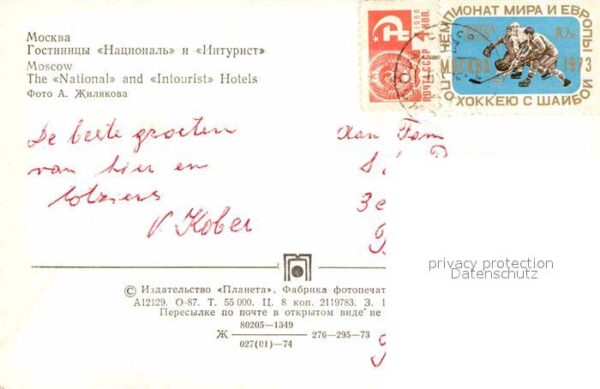 Москва
Гостиницы «Националь» и «Интурист»
Moscow
The «National» and «Intourist» Hotels
Фото А. Жилякова
1966
4 КОП.
ПОЧТА СССР
ЧЕМПИОНАТ МИРА И ЕВРОПЫ
ПО ХОККЕЮ С ШАЙБОЙ
10к
МОСКВА 1973
De beste groeten
van hier en
V. Kober
Aan Fam
privacy protection
Datenschutz
© Издательство «Планета». Фабрика фотопечат
А12129. О-87. Т. 55 000. Ц. 8 коп. 2119783. З. 1
Пересылке по почте в открытом виде не
80205—1349
Ж 276—295—73
027(01)—74